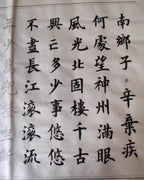 南鄉子·辛棄疾
何處望神州滿眼
風光北固樓千古
興亡多少事悠悠
不盡長江滾滾流